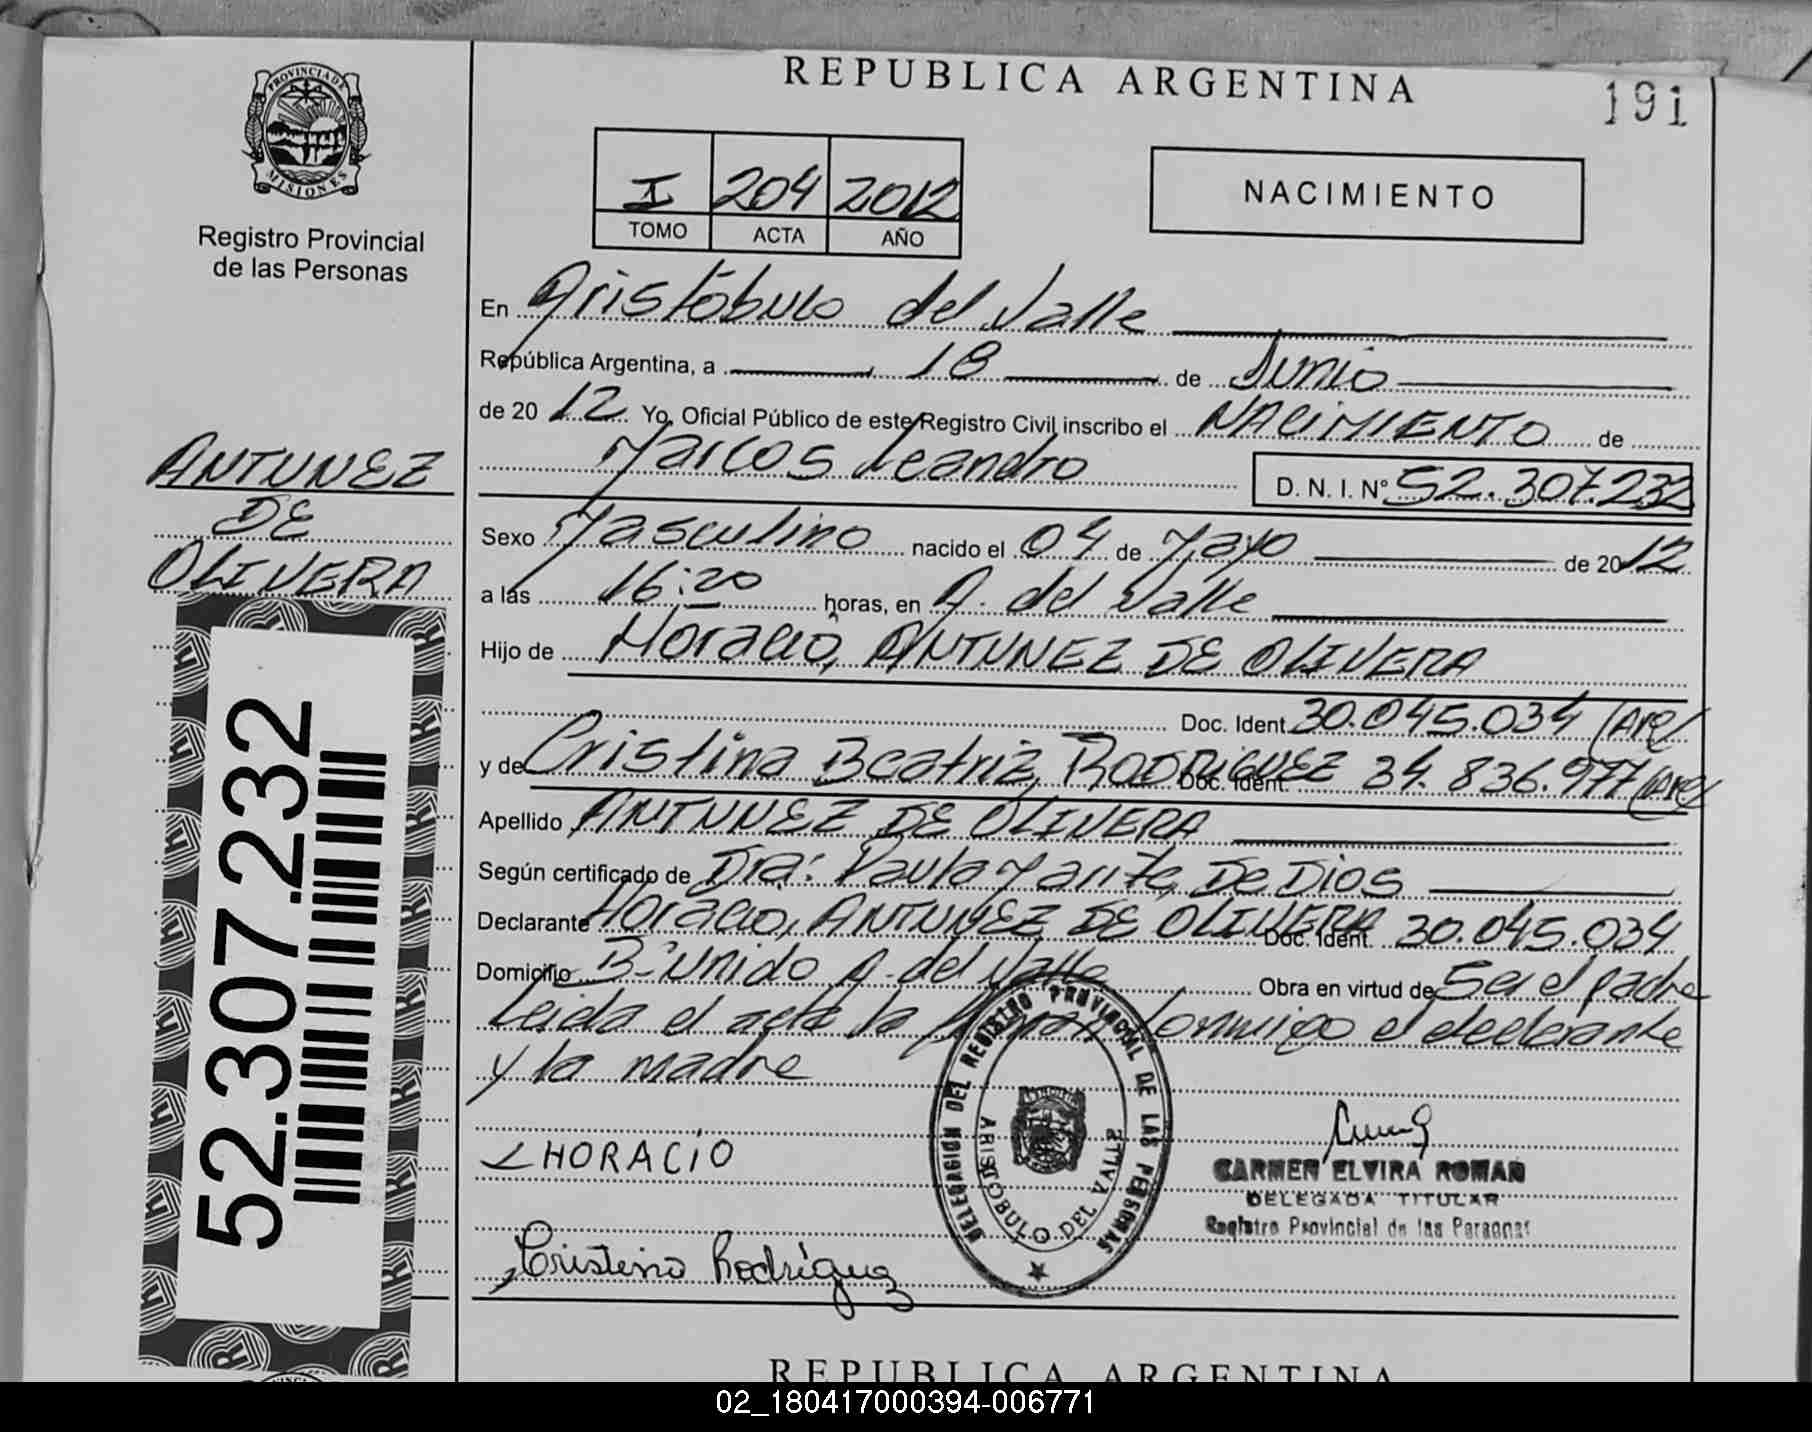 PROVINCIA DE
MISIONES
Registro Provincial
de las Personas
ANTUNEZ
DE
OLIVERA
52.307.232
REPUBLICA ARGENTINA
191
I 204 2012
TOMO ACTA AÑO
NACIMIENTO
En Aristóbulo del Valle
República Argentina, a 18 de Junio
de 2012 Yo, Oficial Público de este Registro Civil inscribo el NACIMIENTO de
Marcos Leandro D. N. I. Nº 52.307.232
Sexo Masculino nacido el 04 de Mayo de 2012
a las 16:20 horas, en A. del Valle
Hijo de Horacio, ANTUNEZ DE OLIVERA
Doc. Ident. 30.045.034 (Arg)
y de Cristina Beatriz, RODRIGUEZ Doc. Ident. 34.836.977 (Arg)
Apellido ANTUNEZ DE OLIVERA
Según certificado de Dra: Paula De Dios
Declarante Horacio, ANTUNEZ DE OLIVERA Doc. Ident. 30.045.034
Domicilio B- Unido A. del Valle Obra en virtud de Ser el padre
Leida el acta la firman conmigo el declarante
y la madre
HORACIO
Cristina Rodríguez
DELEGACION DEL REGISTRO PROVINCIAL DE LAS PERSONAS
ARISTOBULO DEL VALLE
CARMEN ELVIRA ROMAN
DELEGADA TITULAR
Registro Provincial de las Personas
REPUBLICA ARGENTINA
02_180417000394-006771